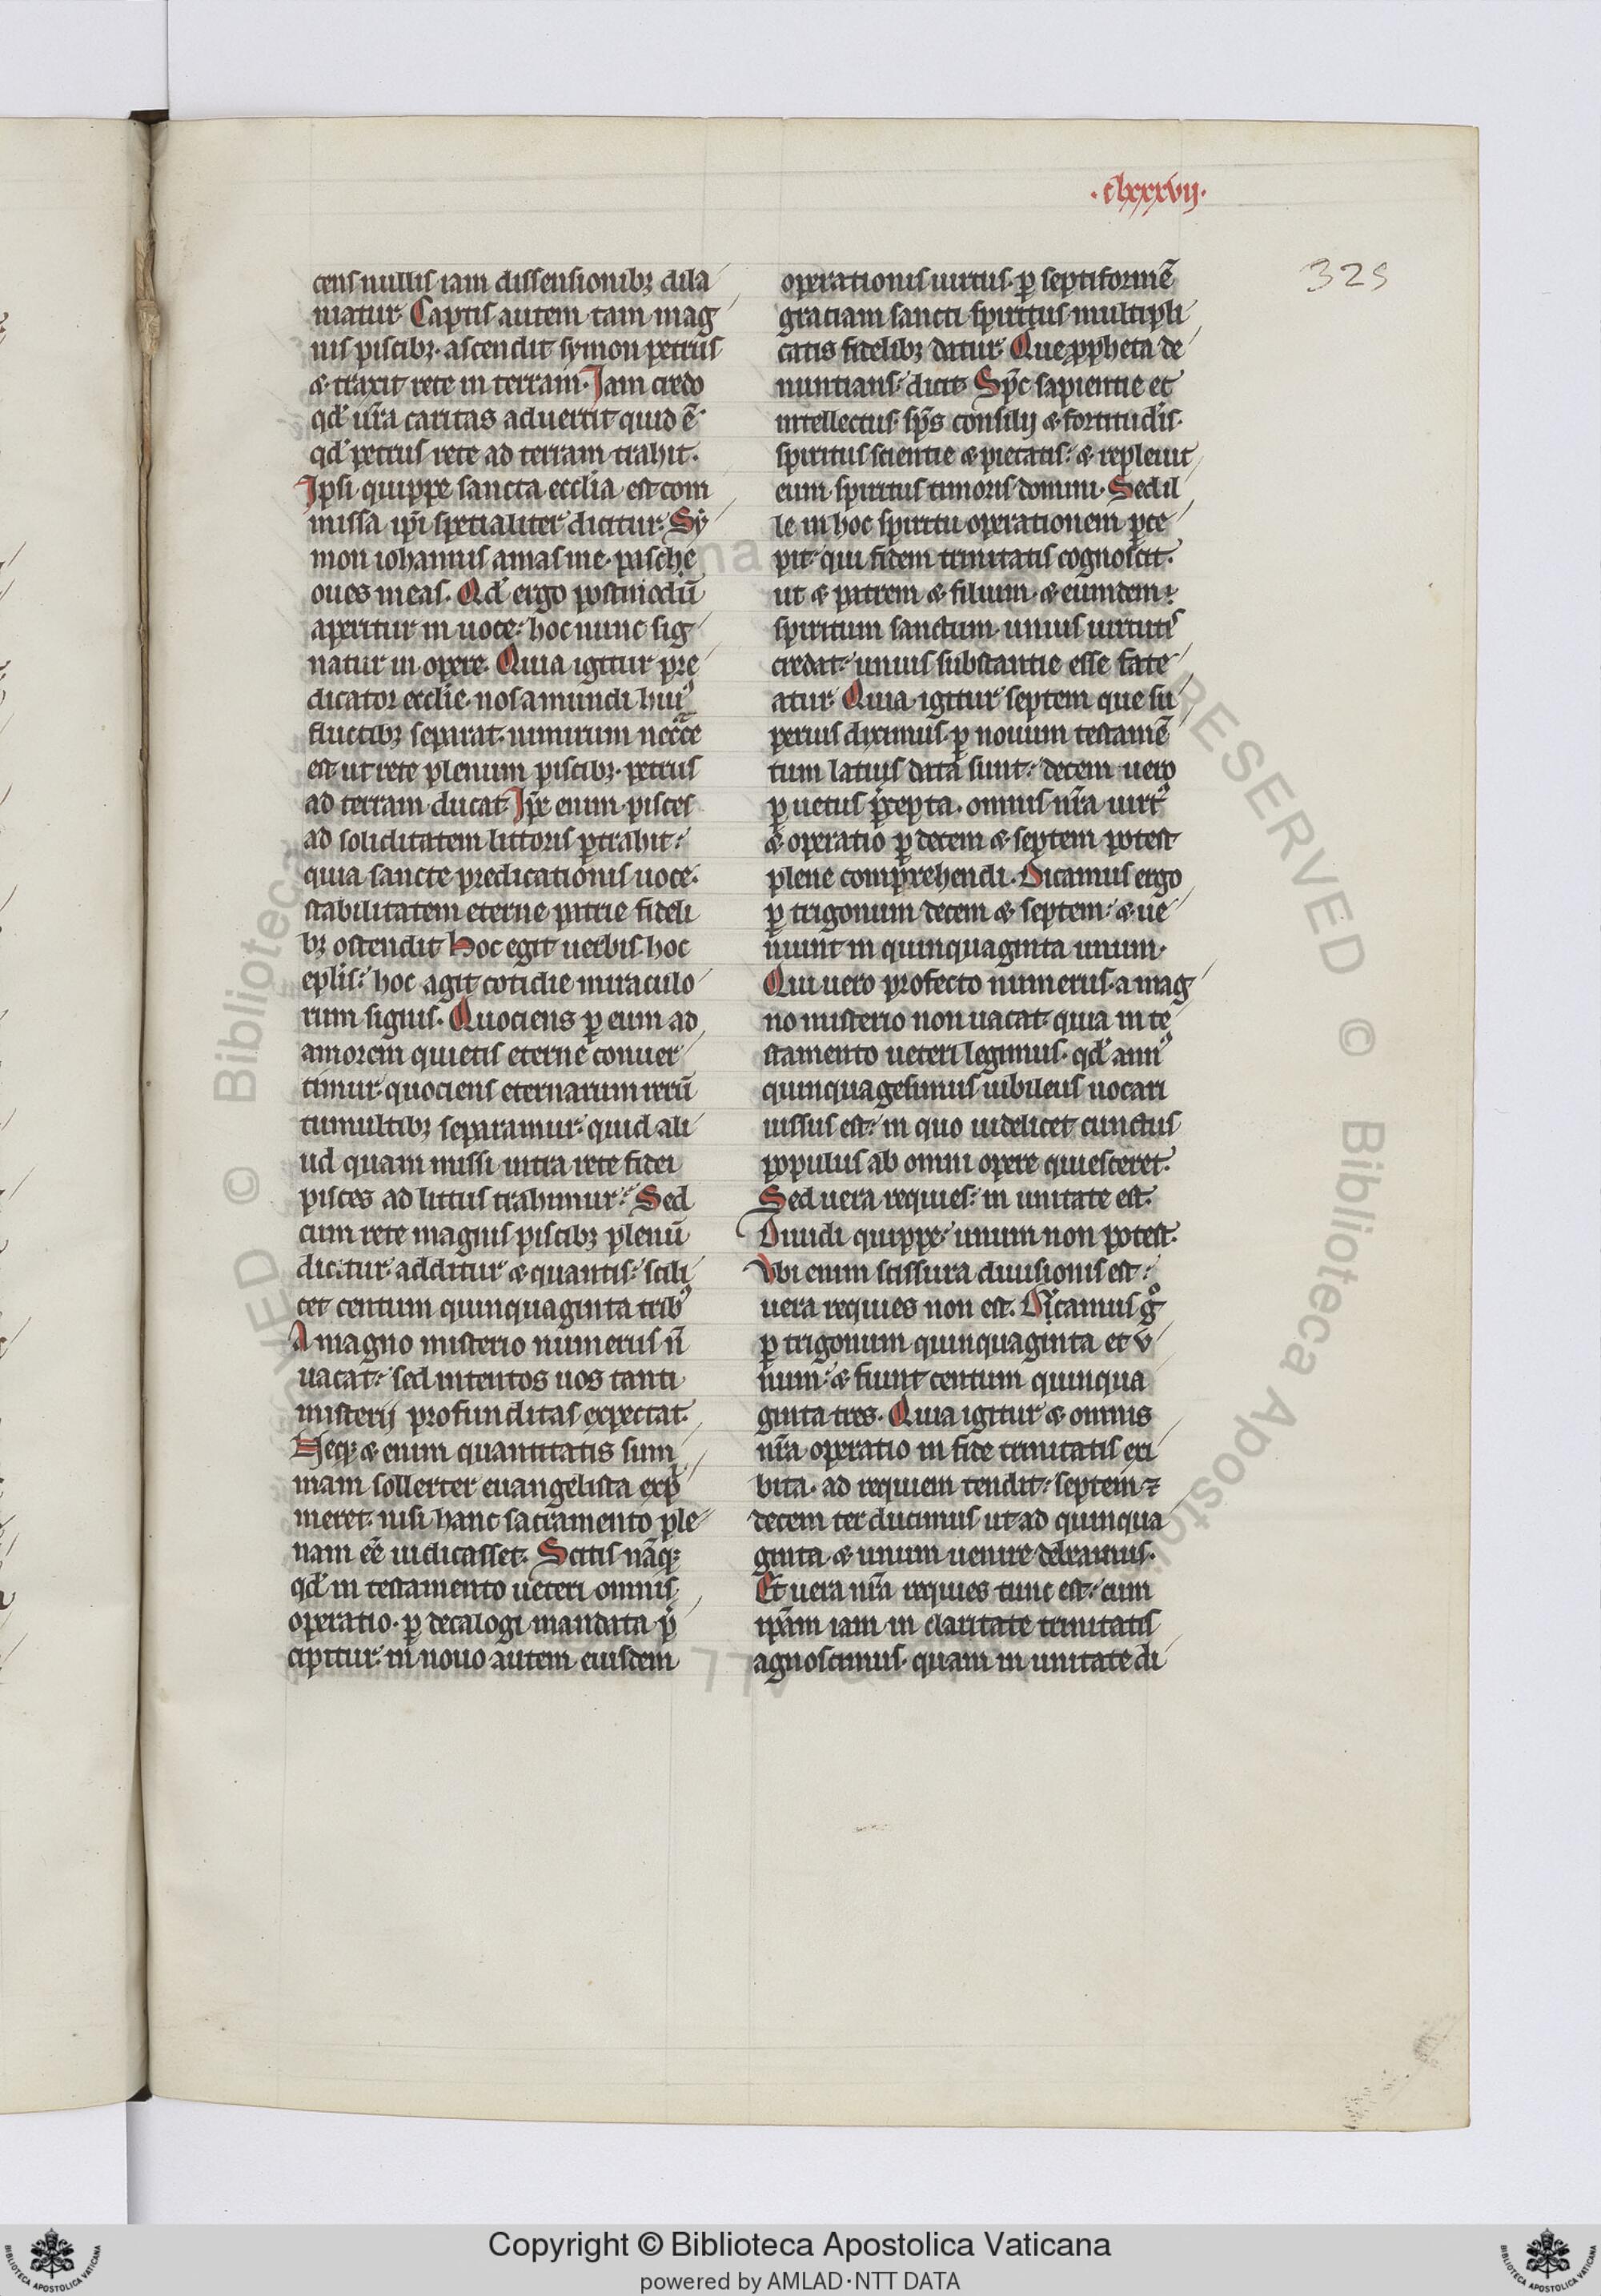 ·clxxxvij·
325
cens nullis iam dissensionibꝫ dila
niatur. Captis autem tam mag
nis piscibꝫ. ascendit symon petrus
⁊ traxit rete in terram. Iam credo
qđ ur̄a caritas aduertit quid ē.
qđ petrus rete ad terram trahit.
Ipsi quippe sancta ecclīa est com
missa ip̄i spetialiter dicitur. Sy
mon iohannis amas me. pasche
oues meas. Qđ ergo postmodū
aperitur in uoce: hoc nunc sig
natur in opere. Quia igitur pre
dicator ecclīe. nos a mundi huiꝰ
fluctibꝫ separat. nimirum necc̄e
est ut rete plenum piscibꝫ. petrus
ad terram ducat. Ip̄e enim pisces
ad soliditatem littoris ꝑtrahit:
quia sancte predicationis uoce.
stabilitatem eterne patrie fideli
bꝫ ostendit. Hoc egit uerbis. hoc
ep̄lis: hoc agit cotidie miraculo
rum signis. Quociens ꝑ eum ad
amorem quietis eterne conuer
timur. quociens eternarum rerū
tumultibꝫ separamur. quid ali
ud quam missi intra rete fidei
pisces ad littus trahimur. Sed
cum rete magnis piscibꝫ plenū
dicitur. additur ⁊ quantis: scili
cet centum quinquaginta tribꝰ
A magno misterio numerus n̄
uacat: sed intentos uos tanti
misterij profunditas expectat.
Neqꝫ ⁊ enim quantitatis sum
mam sollerter euangelista exp̄
meret. nisi hanc sacramento ple
nam eē iudicasset. Scitis nāqꝫ
qđ in testamento ueteri omnis
operatio. ꝑ decalogi mandata p̄
cipitur. in nouo autem eiusdem
operationis uirtus. ꝑ septiformē
gratiam sancti spiritus multipli
catis fidelibꝫ datur. Que ꝓpheta de
nuntians: dicit. Sp̄c sapientie et
intellectus. sp̄s consilij ⁊ fortitudīs.
spiritus scientie ⁊ pietatis: ⁊ repleuit
eum spiritus timoris domini. Sed il
le in hoc spiritu operationem ꝑce
pit. qui fidem trinitatis cognoscit.
ut ⁊ patrem ⁊ filium. ⁊ eumdem
spiritum sanctum. unius uirtutis
credat: unius substantie esse fate
atur. Quia igitur septem que su
perius diximus. ꝑ nouum testamē
tum latius data sunt: decem uero
ꝑ uetus p̄cepta. omnis nr̄a uirtꝰ
⁊ operatio ꝑ decem ⁊ septem potest
plene comprehendi. Dicamus ergo
ꝑ trigonum decem ⁊ septem: ⁊ ue
niunt in quinquaginta unum.
Qui uero profecto numerus. a mag
no misterio non uacat. quia in te
stamento ueteri legimus. qđ annꝰ
quinquagesimus iubileus uocari
iussus est: in quo uidelicet cunctus
populus ab omni opere quiesceret.
Sed uera requies: in unitate est.
Diuidi quippe. unum non potest.
Vbi enim scissura diuisionis est:
uera requies non est. Dicamus gͦ
ꝑ trigonum quinquaginta et v
num: ⁊ fiunt centum quinqua
ginta tres. Quia igitur ⁊ omnis
nr̄a operatio in fide trinitatis exi
bita. ad requiem tendit: septem ⁊
decem ter ducimus ut ad quinqua
ginta ⁊ unum uenire debeamus.
Et uera nr̄a requies tunc est: cum
ip̄am iam in claritate trinitatis
agnoscimus. quam in unitate di
Copyright © Biblioteca Apostolica Vaticana
powered by AMLAD·NTT DATA